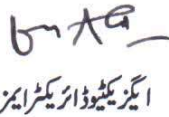 ایگزیکٹیوڈائریکٹرایمز